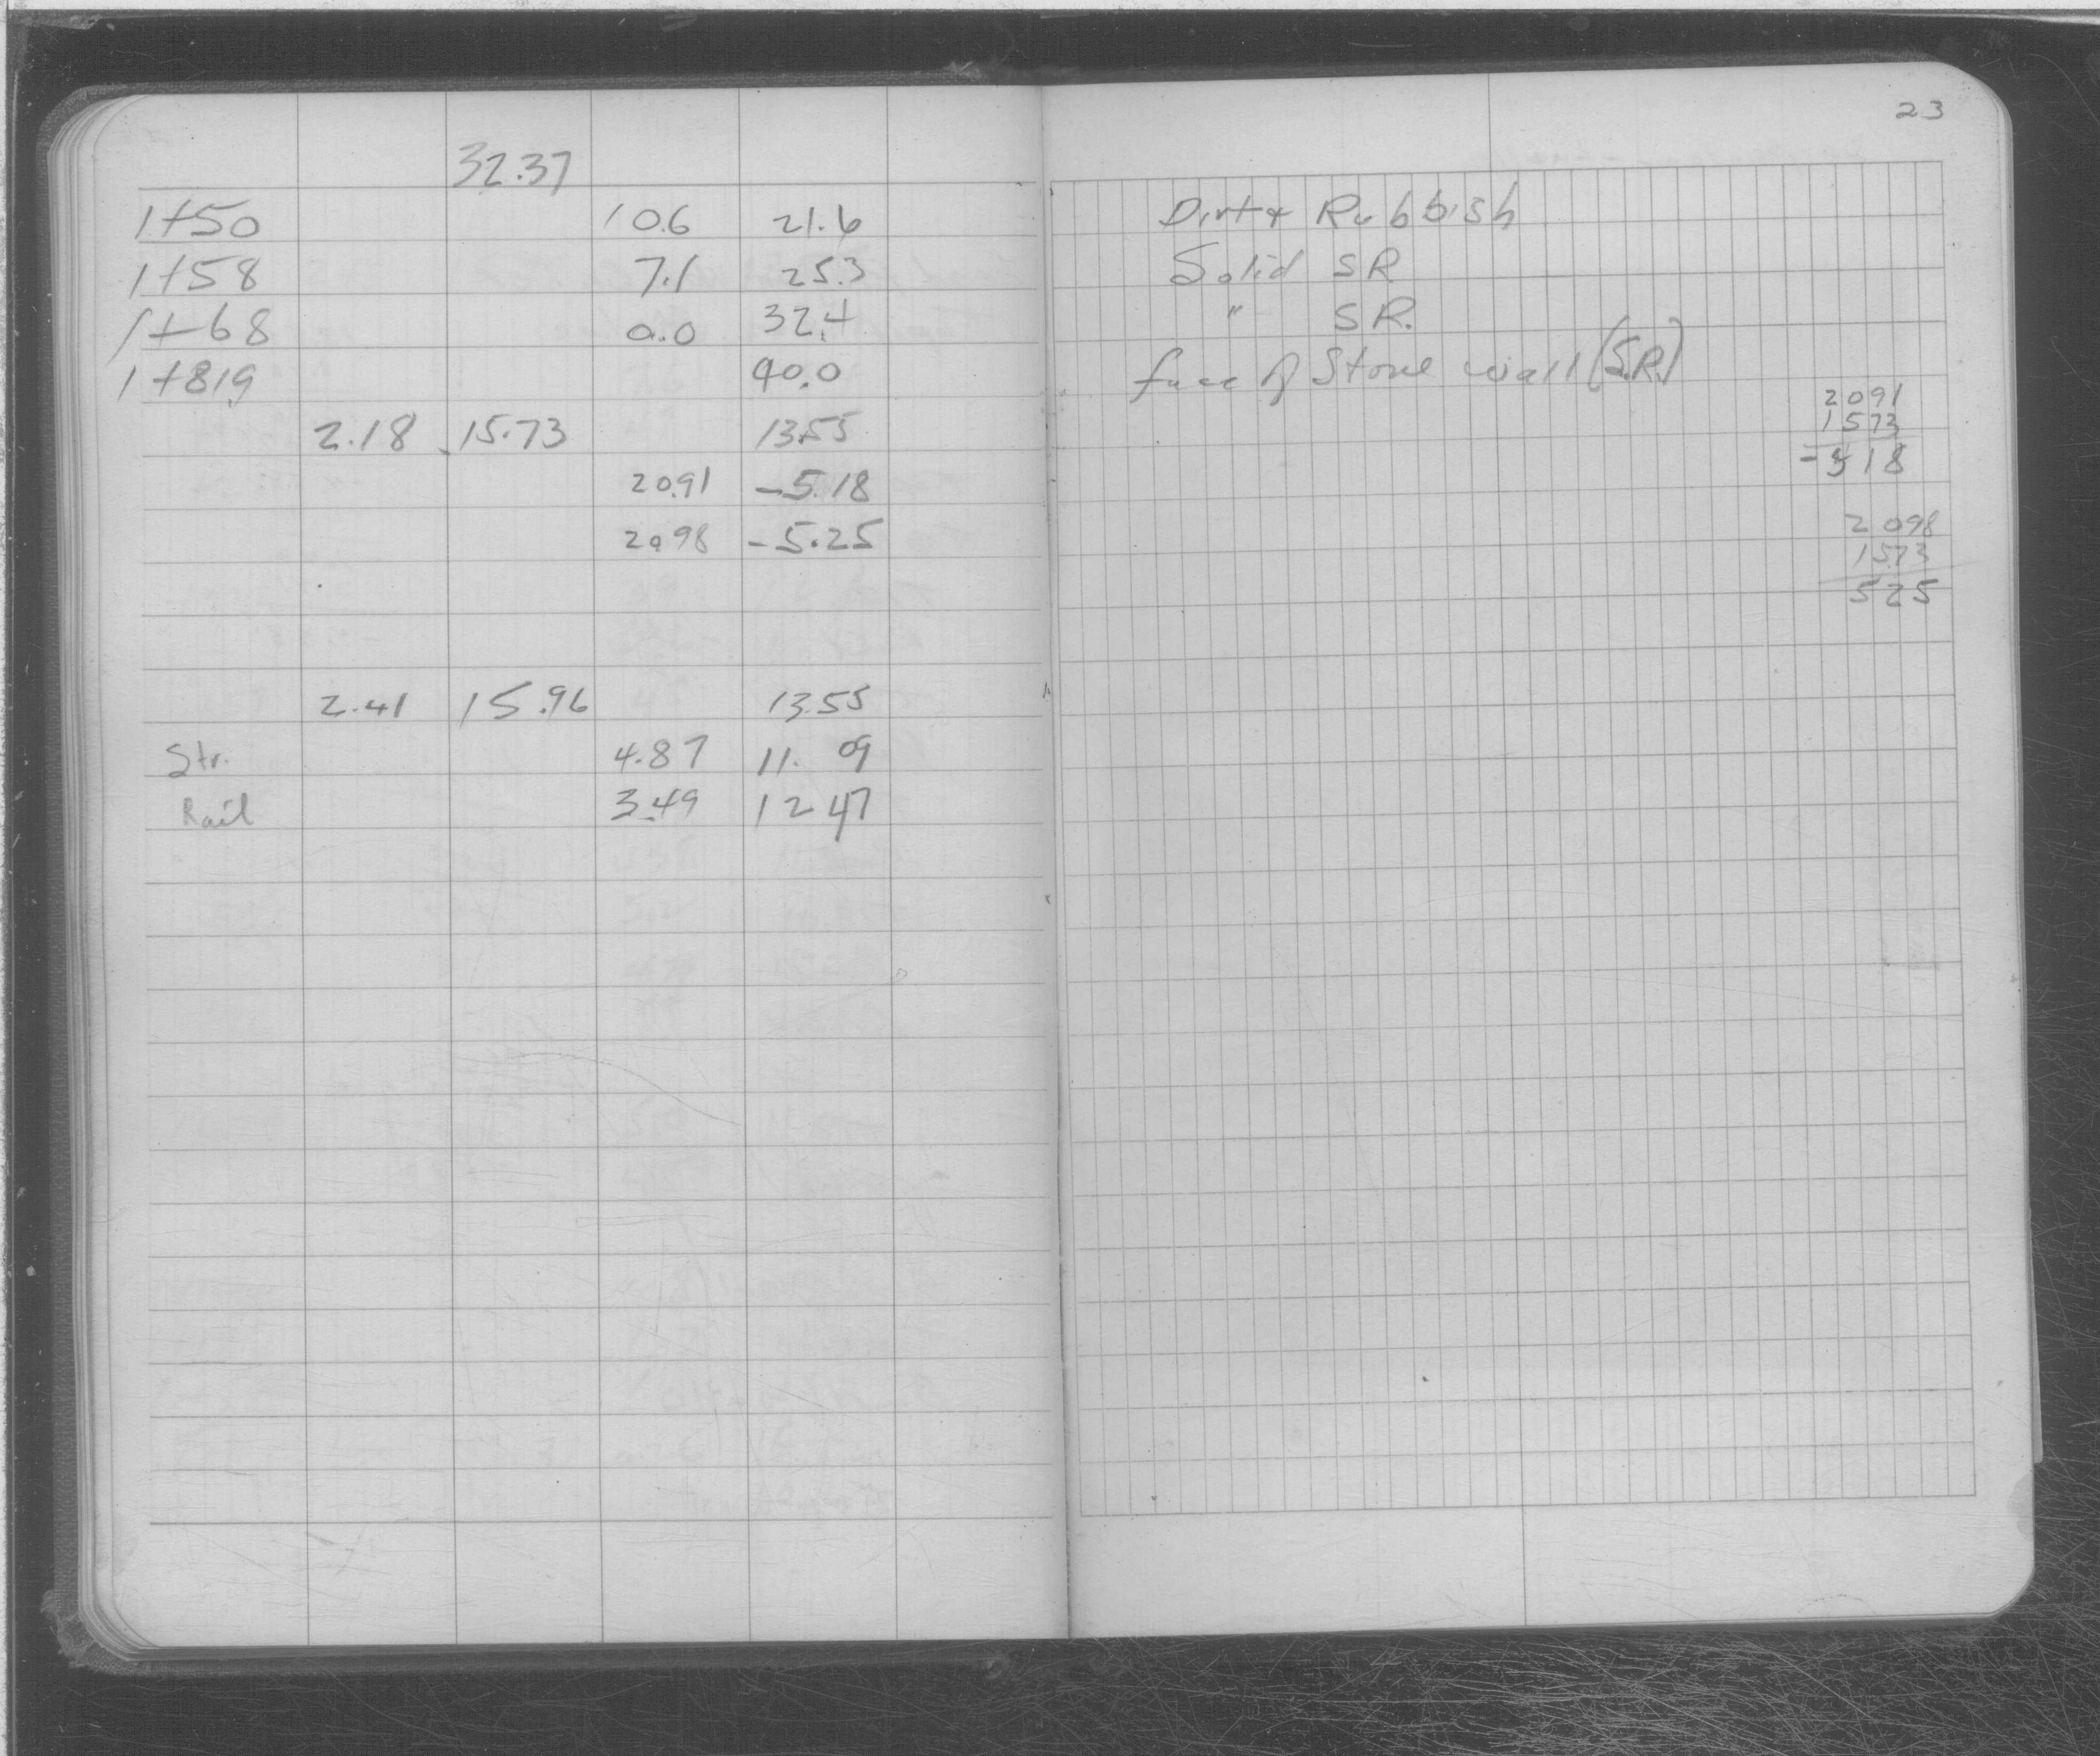 32.37
1+50 10.6 21.6
1+58 7.1 25.3
1+68 0.0 32.4
1+819 40.0
2.18 15.73 13.55
20.91 -5.18
20.98 -5.25
2.41 15.96 13.55
Str. 4.87 11.09
Rail 3.49 12 47
23
Dirt & Rubbish
Solid SR
" SR.
face of Stone wall (S.R.)
2091
1573
-518
2098
1573
525